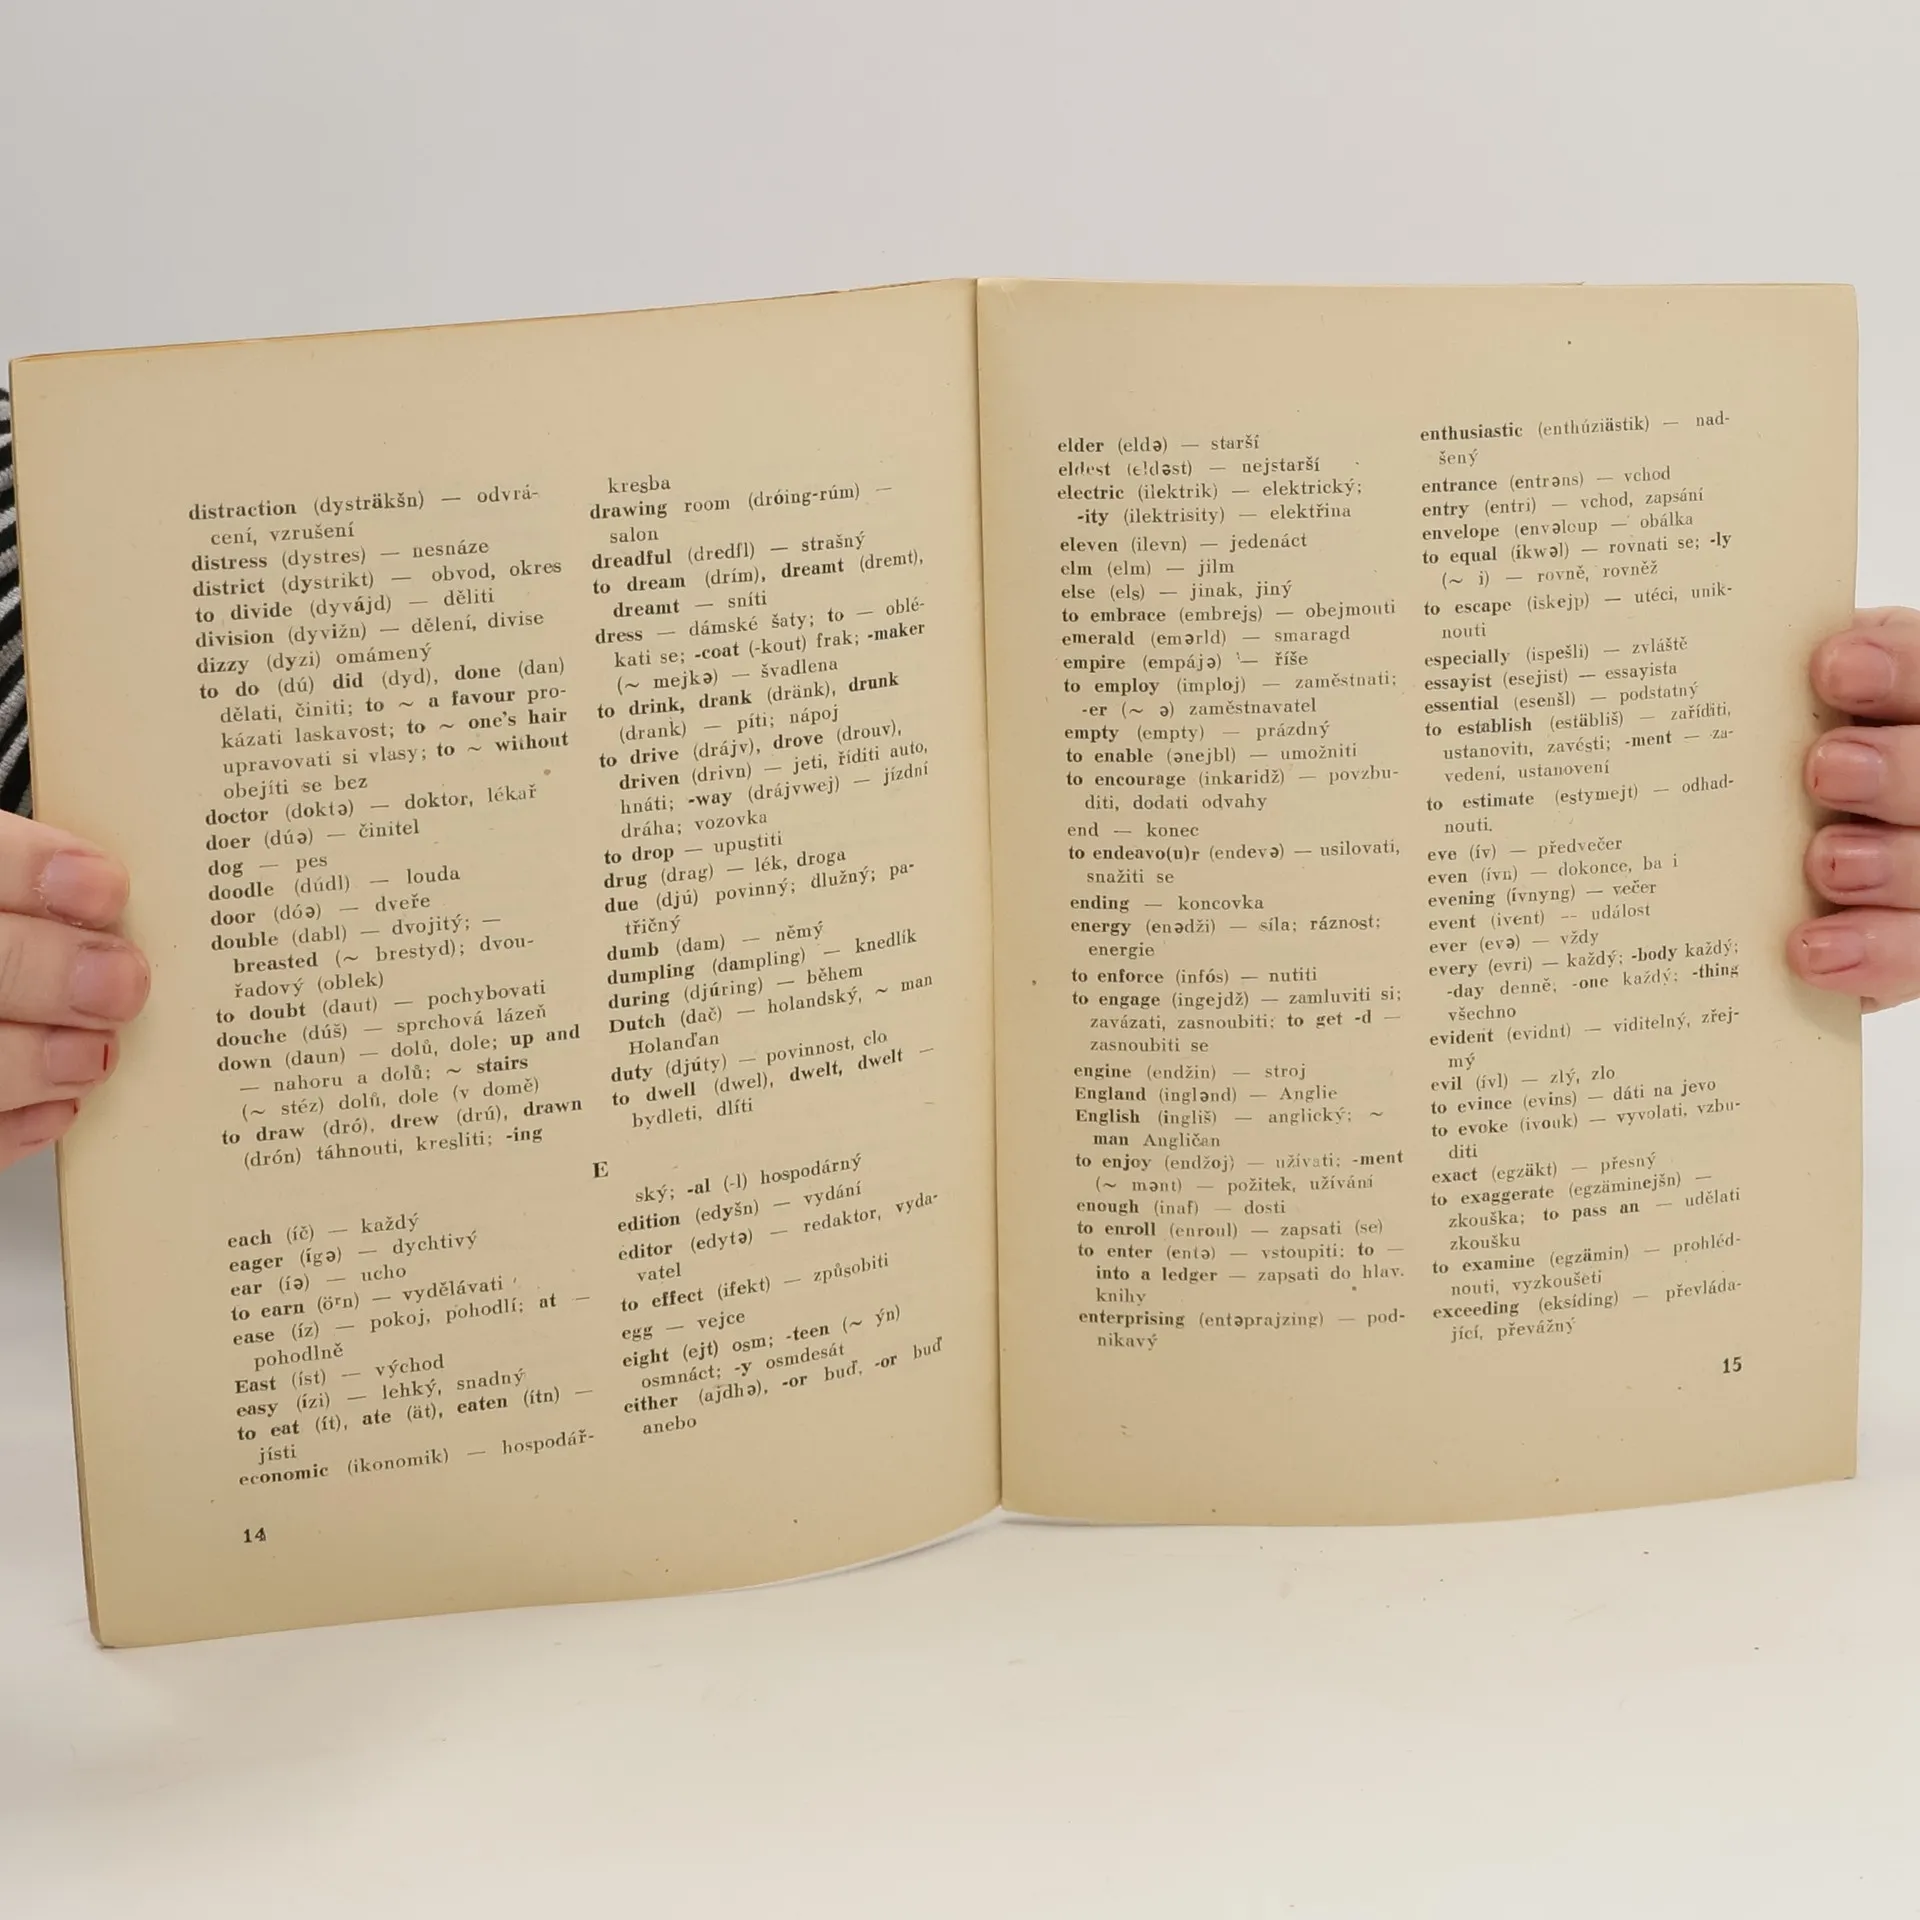 distraction (dysträkšn) — odvrá-
cení, vzrušení
distress (dystres) — nesnáze
district (dystrikt) — obvod, okres
to divide (dyvájd) — děliti
division (dyvižn) — dělení, divise
dizzy (dyzi) omámený
to do (dú) did (dyd), done (dan)
dělati, činiti; to ~ a favour pro-
kázati laskavost; to ~ one's hair
upravovati si vlasy; to ~ without
obejíti se bez
doctor (doktə) — doktor, lékař
doer (dúə) — činitel
dog — pes
doodle (dúdl) — louda
door (dóə) — dveře
double (dabl) — dvojitý; —
breasted (~ brestyd); dvou-
řadový (oblek)
to doubt (daut) — pochybovati
douche (dúš) — sprchová lázeň
down (daun) — dolů, dole; up and
— nahoru a dolů; ~ stairs
(~ stéz) dolů, dole (v domě)
to draw (dró), drew (drú), drawn
(drón) táhnouti, kresliti; -ing
kresba
drawing room (dróing-rúm) —
salon
dreadful (dredfl) — strašný
to dream (drím), dreamt (dremt),
dreamt — sníti
dress — dámské šaty; to — oblé-
kati se; -coat (-kout) frak; -maker
(~ mejkə) — švadlena
to drink, drank (dränk), drunk
(drank) — píti; nápoj
to drive (drájv), drove (drouv),
driven (drivn) — jeti, říditi auto,
hnáti; -way (drájvwej) — jízdní
dráha; vozovka
to drop — upustiti
drug (drag) — lék, droga
due (djú) povinný; dlužný; pa-
třičný
dumb (dam) — němý
dumpling (dampling) — knedlík
during (djúring) — během
Dutch (dač) — holandský, ~ man
Holanďan
duty (djúty) — povinnost, clo
to dwell (dwel), dwelt, dwelt —
bydleti, dlíti
E
each (íč) — každý
eager (ígə) — dychtivý
ear (íə) — ucho
to earn (örn) — vydělávati
ease (íz) — pokoj, pohodlí; at —
pohodlně
East (íst) — východ
easy (ízi) — lehký, snadný
to eat (ít), ate (ät), eaten (ítn) —
jísti
economic (ikonomik) — hospodář-
ský; -al (-l) hospodárný
edition (edyšn) — vydání
editor (edytə) — redaktor, vyda-
vatel
to effect (ifekt) — způsobiti
egg — vejce
eight (ejt) osm; -teen (~ ýn)
osmnáct; -y osmdesát
either (ajdhə), -or buď, -or buď
anebo
14
elder (eldə) — starší
eldest (eldəst) — nejstarší
electric (ilektrik) — elektrický;
-ity (ilektrisity) — elektřina
eleven (ilevn) — jedenáct
elm (elm) — jilm
else (els) — jinak, jiný
to embrace (embrejs) — obejmouti
emerald (emərld) — smaragd
empire (empájə) — říše
to employ (imploj) — zaměstnati;
-er (~ ə) zaměstnavatel
empty (empty) — prázdný
to enable (ənejbl) — umožniti
to encourage (inkaridž) — povzbu-
diti, dodati odvahy
end — konec
to endeavo(u)r (endevə) — usilovati,
snažiti se
ending — koncovka
energy (enədži) — síla; ráznost;
energie
to enforce (infós) — nutiti
to engage (ingejdž) — zamluviti si;
zavázati, zasnoubiti; to get -d —
zasnoubiti se
engine (endžin) — stroj
England (inglənd) — Anglie
English (ingliš) — anglický; ~
man Angličan
to enjoy (endžoj) — užívati; -ment
(~ mənt) — požitek, užívání
enough (inaf) — dosti
to enroll (enroul) — zapsati (se)
to enter (entə) — vstoupiti; to —
into a ledger — zapsati do hlav.
knihy
enterprising (entəprajzing) — pod-
nikavý
enthusiastic (enthúziästik) — nad-
šený
entrance (entrəns) — vchod
entry (entri) — vchod, zapsání
envelope (envəloup — obálka
to equal (íkwəl) — rovnati se; -ly
(~ i) — rovně, rovněž
to escape (iskejp) — utéci, unik-
nouti
especially (ispešli) — zvláště
essayist (esejist) — essayista
essential (esenšl) — podstatný
to establish (estäbliš) — zaříditi,
ustanoviti, zavésti; -ment — za-
vedení, ustanovení
to estimate (estymejt) — odhad-
nouti.
eve (ív) — předvečer
even (ívn) — dokonce, ba i
evening (ívnyng) — večer
event (ivent) — událost
ever (evə) — vždy
every (evri) — každý; -body každý;
-day denně; -one každý; -thing
všechno
evident (evidnt) — viditelný, zřej-
mý
evil (ívl) — zlý, zlo
to evince (evins) — dáti na jevo
to evoke (ivouk) — vyvolati, vzbu-
diti
exact (egzäkt) — přesný
to exaggerate (egzäminejšn) —
zkouška; to pass an — udělati
zkoušku
to examine (egzämin) — prohléd-
nouti, vyzkoušeti
exceeding (eksíding) — převláda-
jící, převážný
15